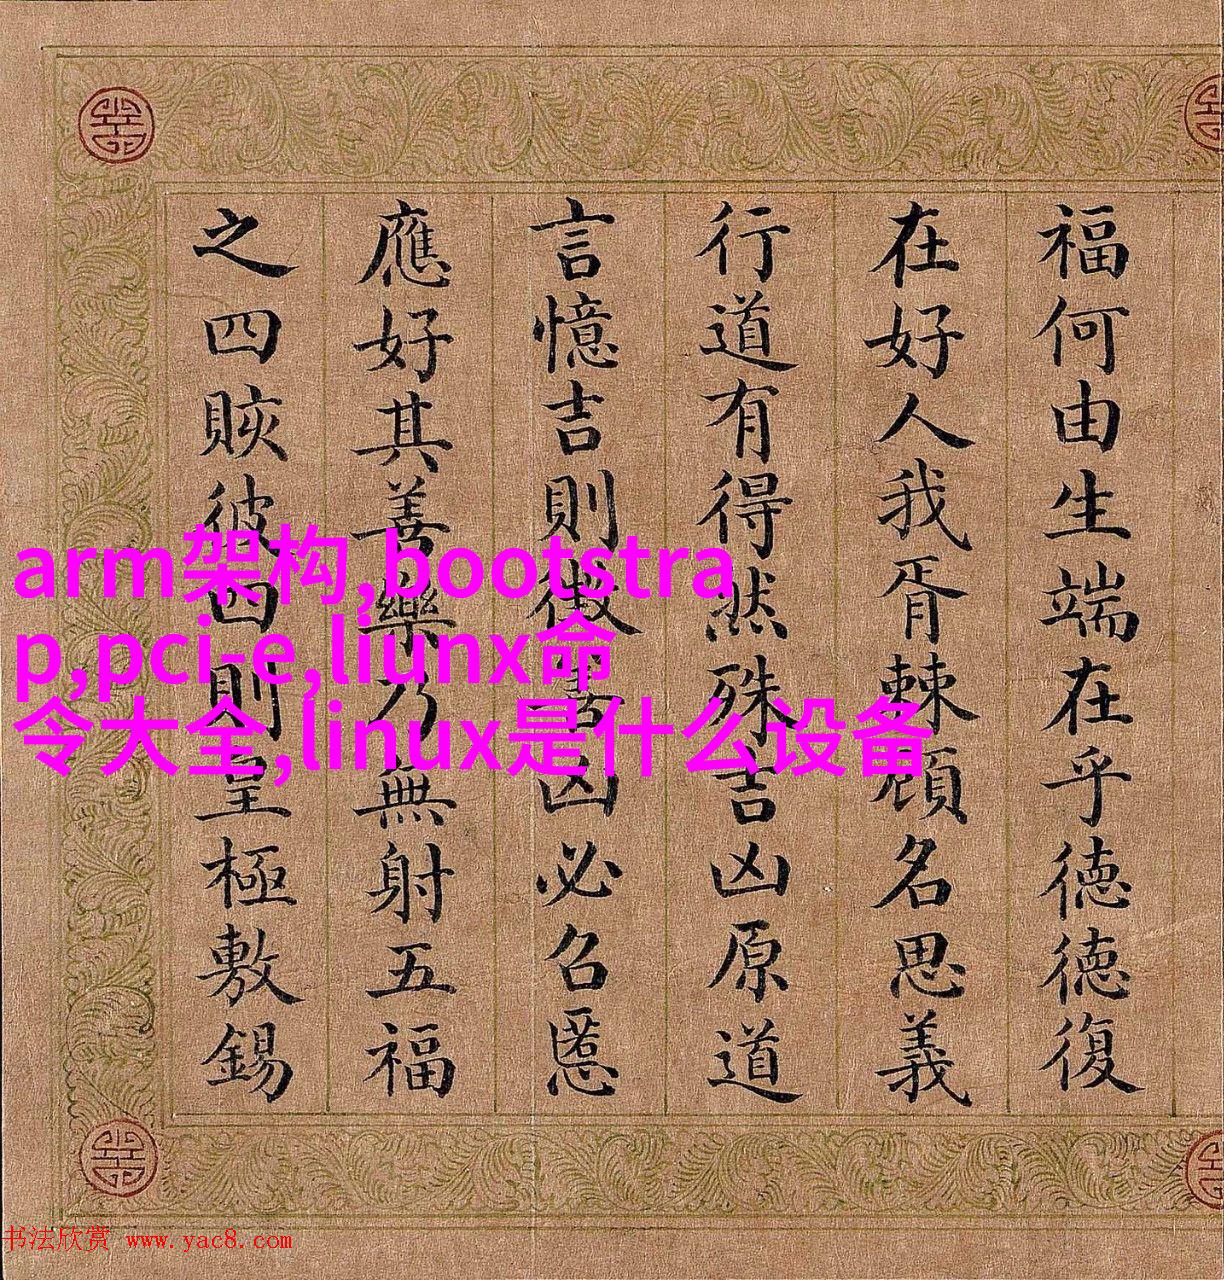 福何由生端在乎德德復
在好人我胥棘顧名思義
行道有得然殊吉凶原道
言憶吉則徴凶必名慝
應好其善樂乃無射五福
之四賅彼四則皇極敷錫
arm架构,bootstra
p,pci-e,liunx命
令大全,linux是什么设备
书法欣赏 www.yac8.com